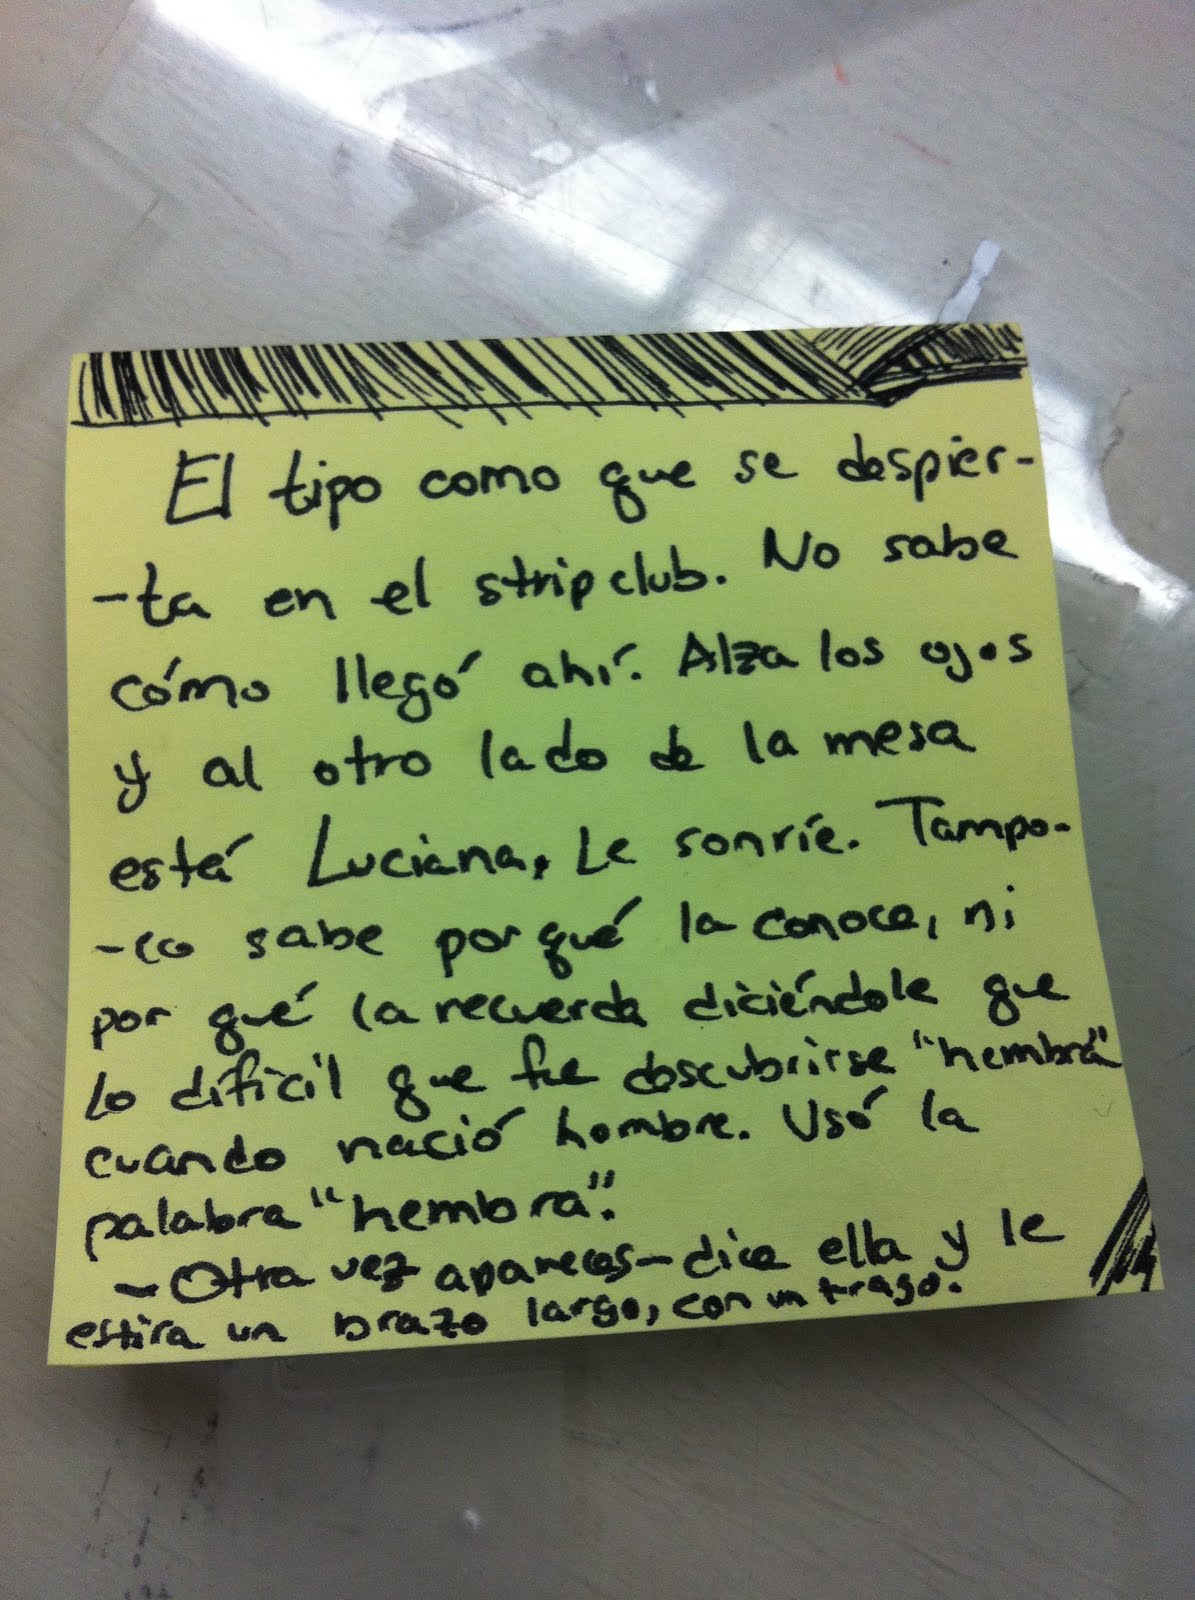 El tipo como que se despier-
-ta en el stripclub. No sabe
cómo llegó ahí. Alza los ojos
y al otro lado de la mesa
está Luciana. Le sonríe. Tampo-
-co sabe por qué la conoce, ni
por qué la recuerda diciéndole que
lo difícil que fue descubrirse "hembra"
cuando nació hombre. Usó la
palabra "hembra".
- Otra vez apareces - dice ella y le
estira un brazo largo, con un trago.